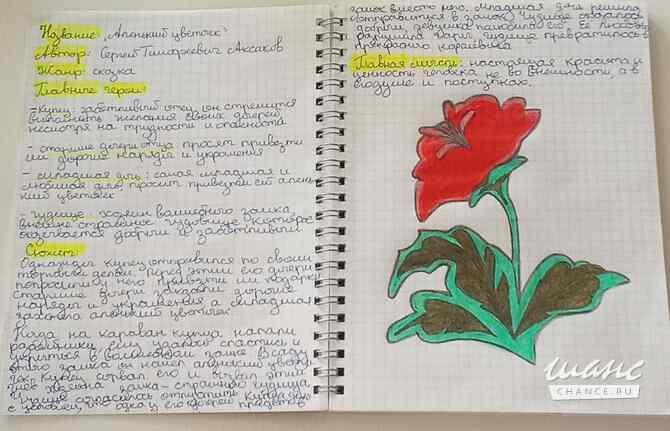 Название: „Аленький цветочек"
Автор: Сергей Тимофеевич Аксаков
Жанр: сказка
Главные герои:
- Купец: заботливый отец, он стремится
выполнить желания своих дочерей,
несмотря на трудности и опасности
- старшие дочери отца просят привезти
им дорогие наряды и украшения
- младшая дочь: самая младшая и
любимая дочь, просит привезти ей алень-
кий цветочек
- чудище: хозяин волшебного замка,
внешне страшное чудовище, которое
оказывается добрым и заботливым
Сюжет:
Однажды купец отправился по своим
торговым делам. Перед этим его дочери
попросили у него привезти им подарки
Старшие дочери заказали дорогие
наряды и украшения, а младшая
захотела аленький цветочек
Когда на караван купца напали
разбойники, ему удалось спастись и
укрыться в волшебном замке. В саду
этого замка он нашел аленький цвето-
чек. Купец сорвал его и этим
хозяина замка - страшного чудища
Чудище согласилось отпустить купца домой
с условием, что одна из его дочерей
замок вместо него. Младшая дочь решила
отправиться в замок. Чудище оказалось
добрым, девушка полюбила его. Её любовь
чары, чудище превратилось в
прекрасного королевича
Главная мысль: настоящая красота и
ценность человека не во внешности, а в
его душе и поступках.
шанс
CHANCE.RU